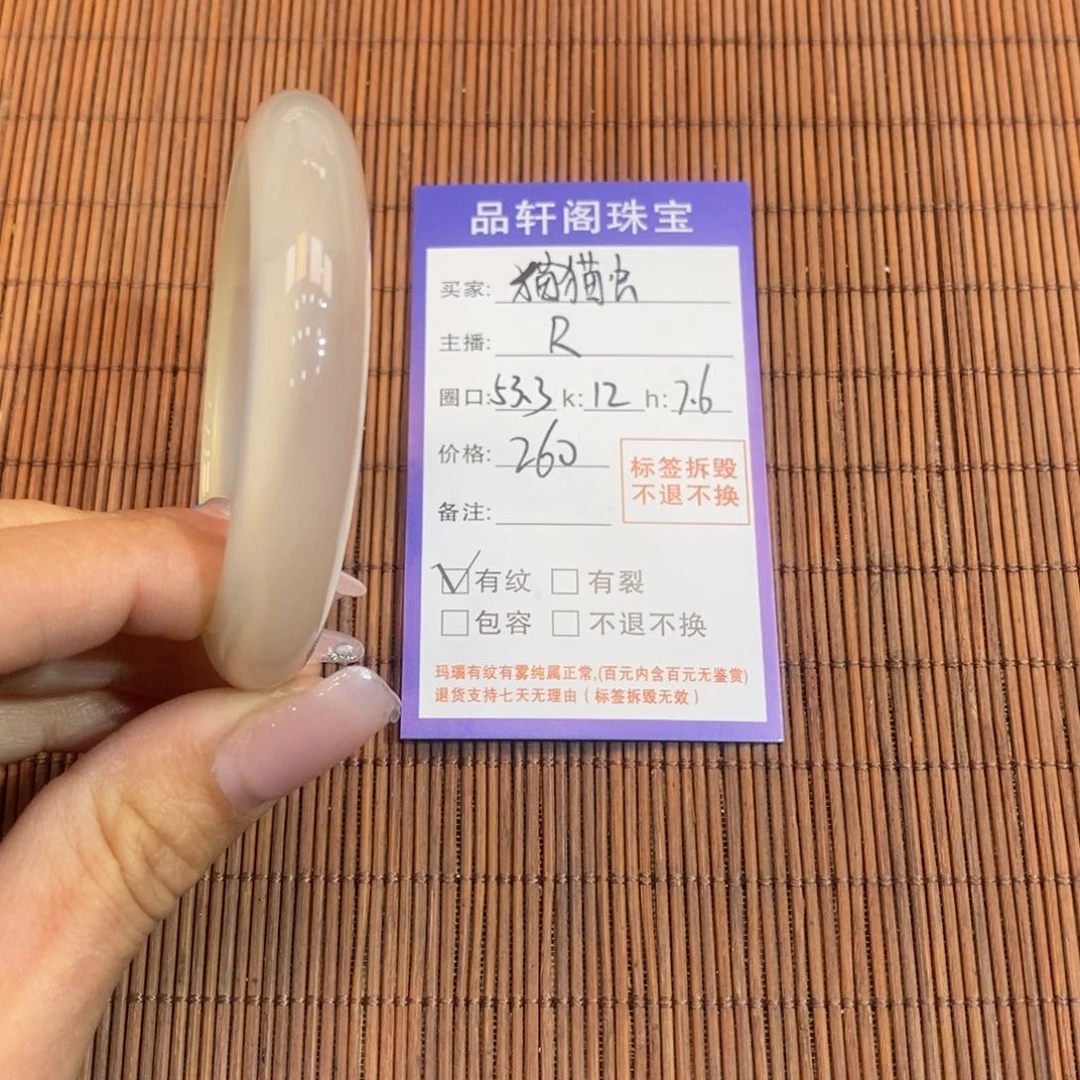 品轩阁珠宝
买家: 猫猫虫
主播: R
圈口:53.3 k:12 h:7.6
价格: 260
标签拆毁
不退不换
备注:
有纹 有裂
包容 不退不换
玛瑙有纹有雾纯属正常,(百元内含百元无鉴赏)
退货支持七天无理由(标签拆毁无效)